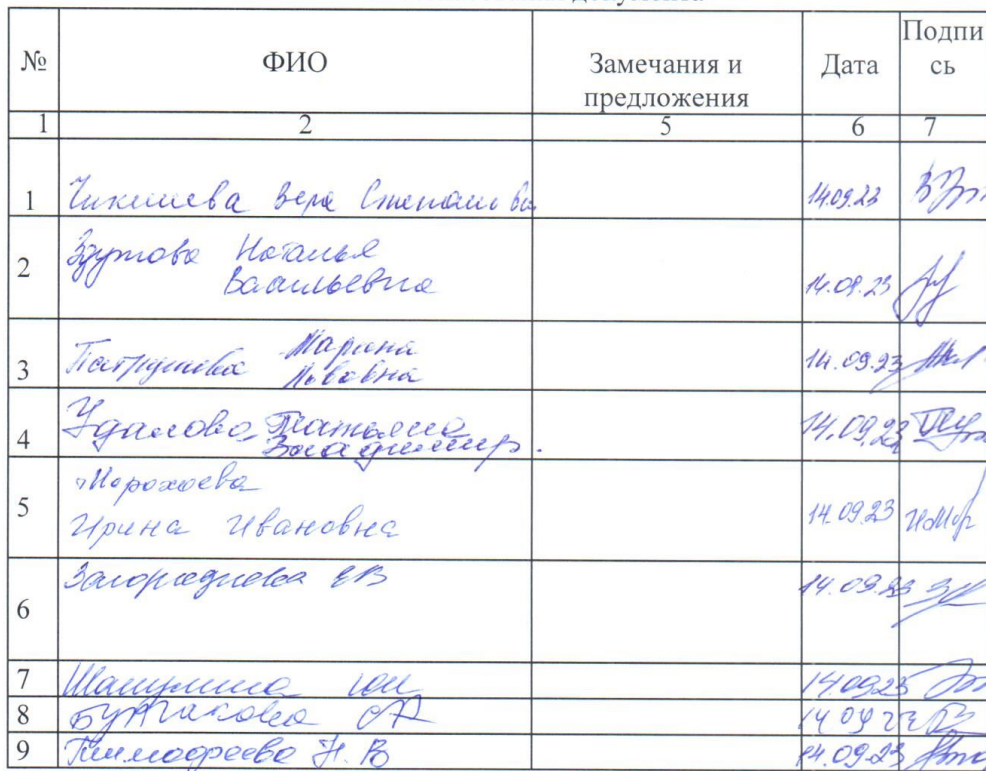 № ФИО Замечания и предложения Дата Подпись
1 2 5 6 7
1 Чикишева Вера Степановна 14.09.23
2 Наталья
Васильевна 14.09.23
3 Патрушева Марина
Львовна 14.09.23
4 Удалова Татьяна
Владимир. 14.09.23
5 Морохоева
Ирина Ивановна 14.09.23
6 Загороднева ЕВ 14.09.23
7 14.09.23
8 Бурлакова 14 09 23
9 Тимофеева Н. В 14.09.23